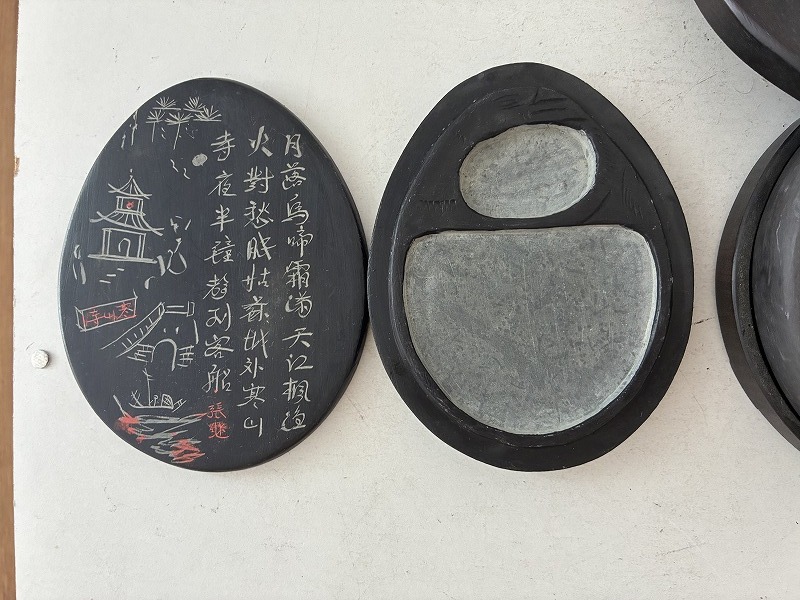 月落烏啼霜满天江楓漁
火對愁眠姑蘇城外寒山
寺夜半鐘聲到客船
張繼
寒山寺